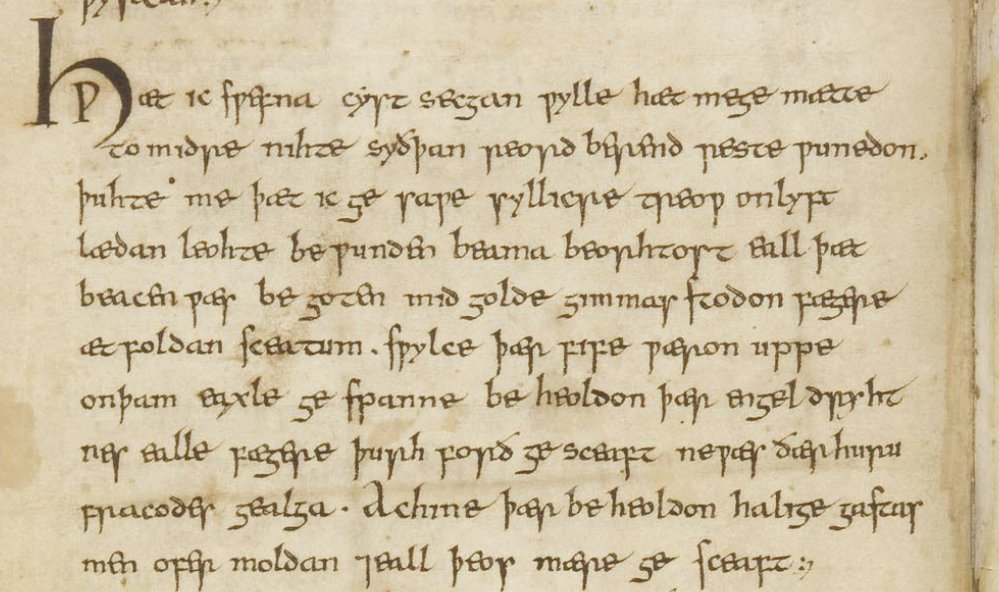 Hƿæt ic sƿefna cyst secgan ƿylle hæt mege mætte
to midre nihte syðþan reord berend reste ƿunedon.
þuhte me þæt ic ge saƿe syllicre treoƿ onlyft
lædan leohte be ƿunden beama beorhtost eall þæt
beacen ƿæs be goten mid golde gimmas stodon fægere
æt foldan sceatum . sƿylce þær fife ƿæron uppe
onþam eaxle ge spanne be heoldon þær engel dryht
nes ealle fægere þurh forð ge sceaft neƿæs ðær huru
fracodes gealga . Achine þær be heoldon halige gastas
men ofer moldan ⁊eall þeos mære ge sceaft :,